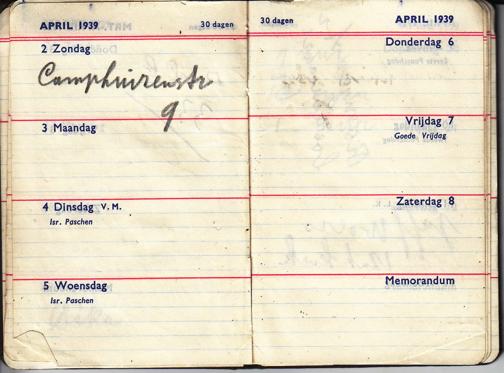 APRIL 1939
30 dagen
2 Zondag
Camphuizenstr
9
3 Maandag
4 Dinsdag V. M.
Isr. Paschen
5 Woensdag
Isr. Paschen
30 dagen
APRIL 1939
Donderdag 6
Vrijdag 7
Goede Vrijdag
Zaterdag 8
Memorandum